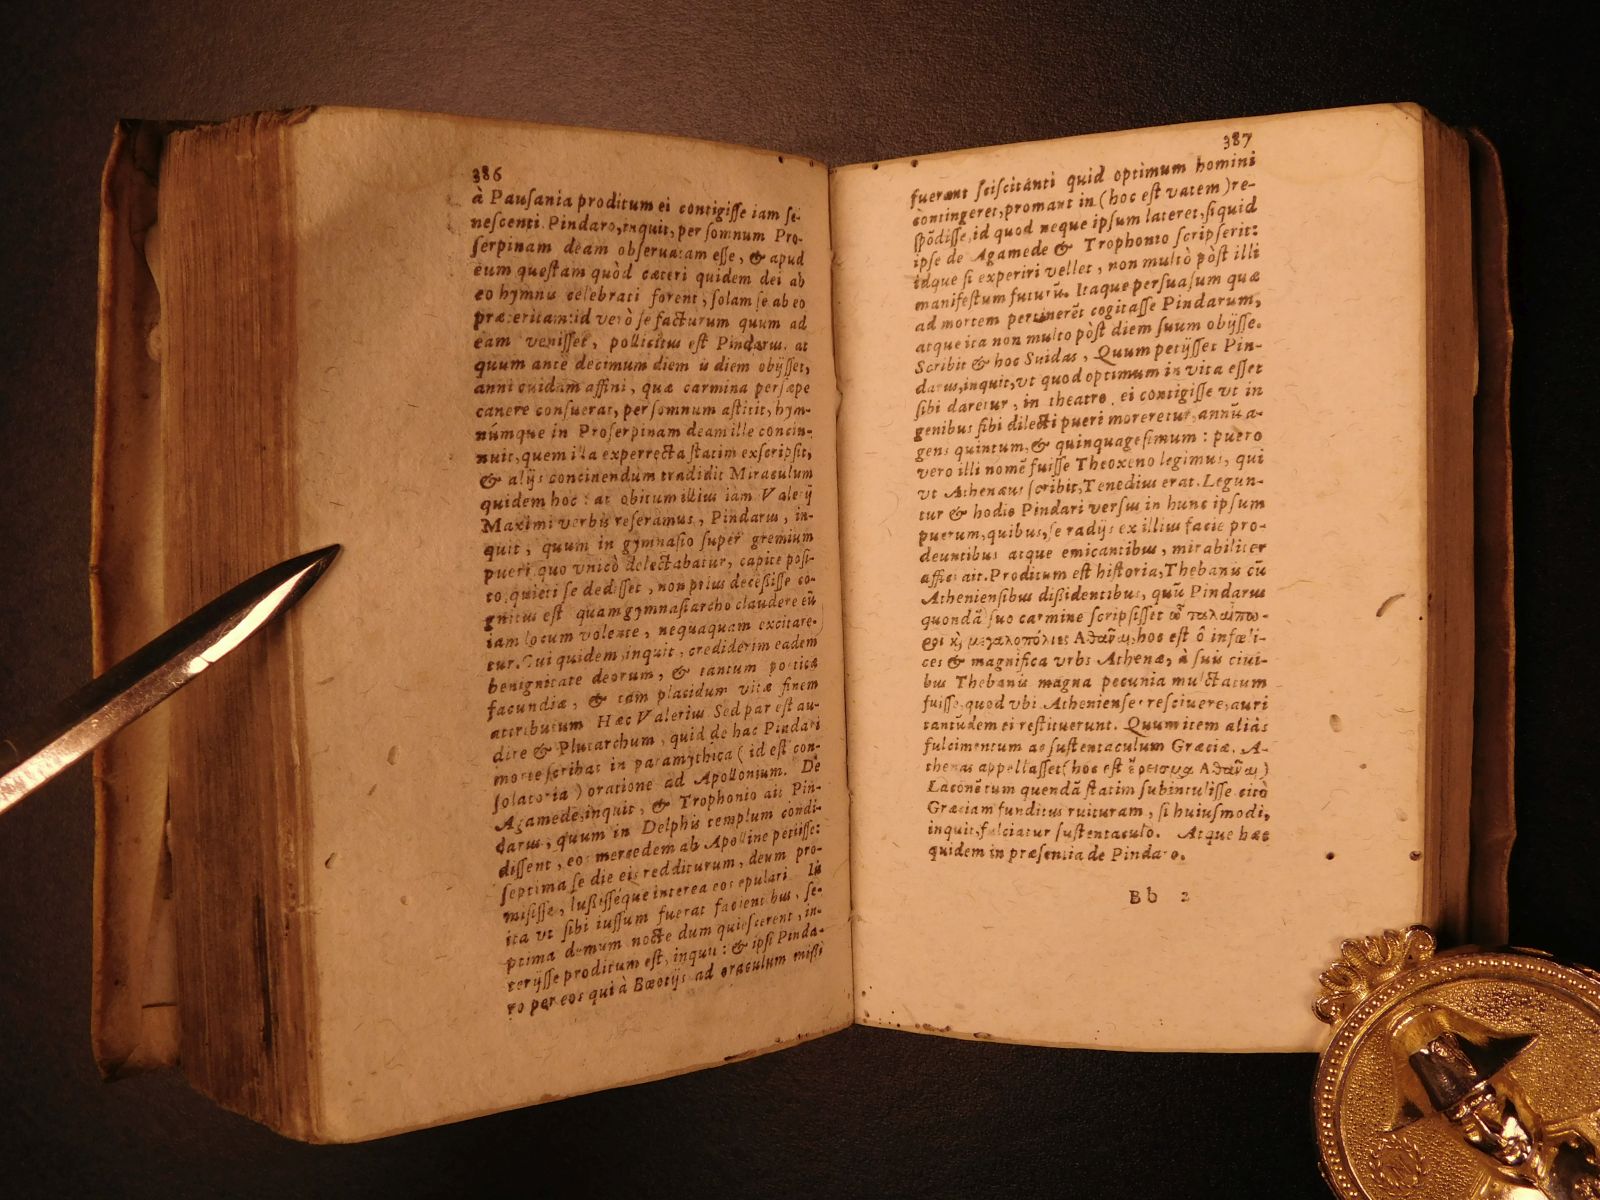 386
à Pauſania proditum ei contigiſſe iam ſe-
neſcenti. Pindaro, inquit, per ſomnum Pro-
ſerpinam deam obſeruatam eſſe, & apud
eum queſtam quòd cæteri quidem dei ab
eo hymnis celebrati forent, ſolam ſe ab eo
præteritam: id verò ſe facturum quum ad
eam veniſſet, pollicitus eſt Pindarus. at
quum ante decimum diem is diem obijſſet,
anni cuidam affini, quæ carmina perſæpe
canere conſuerat, per ſomnum aſtitit, hym-
númque in Proſerpinam deam ille concin-
nuit, quem illa experrecta ſtatim exſcripſit,
& alijs concinendum tradidit Miraculum
quidem hoc: at obitum illius iam Valerij
Maximi verbis referamus, Pindarus, in-
quit, quum in gymnaſio ſuper gremium
pueri quo vnicò delectabatur, capite poſi-
to, quieti ſe dediſſet, non priùs deceßiſſe co-
gnitus eſt quam gymnaſiarcho claudere eũ
iam locum volente, nequaquam excitare-
tur. Cui quidem, inquit, crediderim eadem
benignitate deorum, & tantum poeticæ
facundiæ, & tam placidum vitæ finem
attributum Hæc Valerius Sed par eſt au-
dire & Plutarchum, quid de hac Pindari
morte ſcribat in paramythica (id eſt con-
ſolatoria) oratione ad Apollonium. De
Agamede, inquit, & Trophonio ait Pin-
darus, quum in Delphis templum condi-
diſſent, eos mercedem ab Apolline petiiſſe:
ſeptima ſe die eis redditurum, deum pro-
miſiſſe, lußiſſéque interea eos epulari. In
ita vt ſibi iuſſum fuerat facientibus, ſe-
ptima demum nocte dum quieſcerent, in-
terijſſe proditum eſt, inquit: & ipſi Pinda-
ro per eos qui à Bœotijs ad oraculum miſſi
387
fuerant ſciſcitanti quid optimum homini
contingeret, promant in (hoc eſt vatem) re-
ſpõdiſſe, id quod neque ipſum lateret, ſiquid
ipſe de Agamede & Trophonio ſcripſerit:
idque ſi experiri vellet, non multò pòſt illi
manifeſtum futurũ. Itaque perſuaſum quæ
ad mortem pertinerẽt cogitaſſe Pindarum,
atque ita non multo pòſt diem ſuum obijſſe.
Scribit & hoc Suidas, Quum petijſſet Pin-
darus, inquit, vt quod optimum in vita eſſet
ſibi daretur, in theatro, ei contigiſſe vt in
genibus ſibi dilecti pueri moreretur, annũ a-
gens quintum, & quinquageſimum: puero
vero illi nomẽ fuiſſe Theoxeno legimus, qui
vt Athenæus ſcribit, Tenedius erat. Legun-
tur & hodie Pindari verſus in hunc ipſum
puerum, quibus, ſe radijs ex illius facie pro-
deuntibus atque emicantibus, mirabiliter
affici ait. Proditum eſt hiſtoria, Thebanis cũ
Athenienſibus dißidentibus, quũ Pindarus
quondã ſuo carmine ſcripſiſſet ὦ ταλαίπω-
ροι ϗ μεγαλοπόλιες Ἀθᾶναι, hoc eſt ô infœli-
ces & magnifica vrbs Athenæ, à ſuis ciui-
bus Thebanis magna pecunia mulctatum
fuiſſe, quod vbi Athenienſes reſciuere, auri
tantũdem ei reſtituerunt. Quum item aliàs
fulcimentum ac ſuſtentaculum Græciæ, A-
thenas appellaſſet (hoc eſt ἔρεισμα Ἀθᾶναι)
Laconẽ tum quendã ſtatim ſubintuliſſe citò
Græciam funditus ruituram, ſi huiuſmodi,
inquit, fulciatur ſuſtentaculo. Atque hæc
quidem in præſentia de Pindaro.
Bb 2